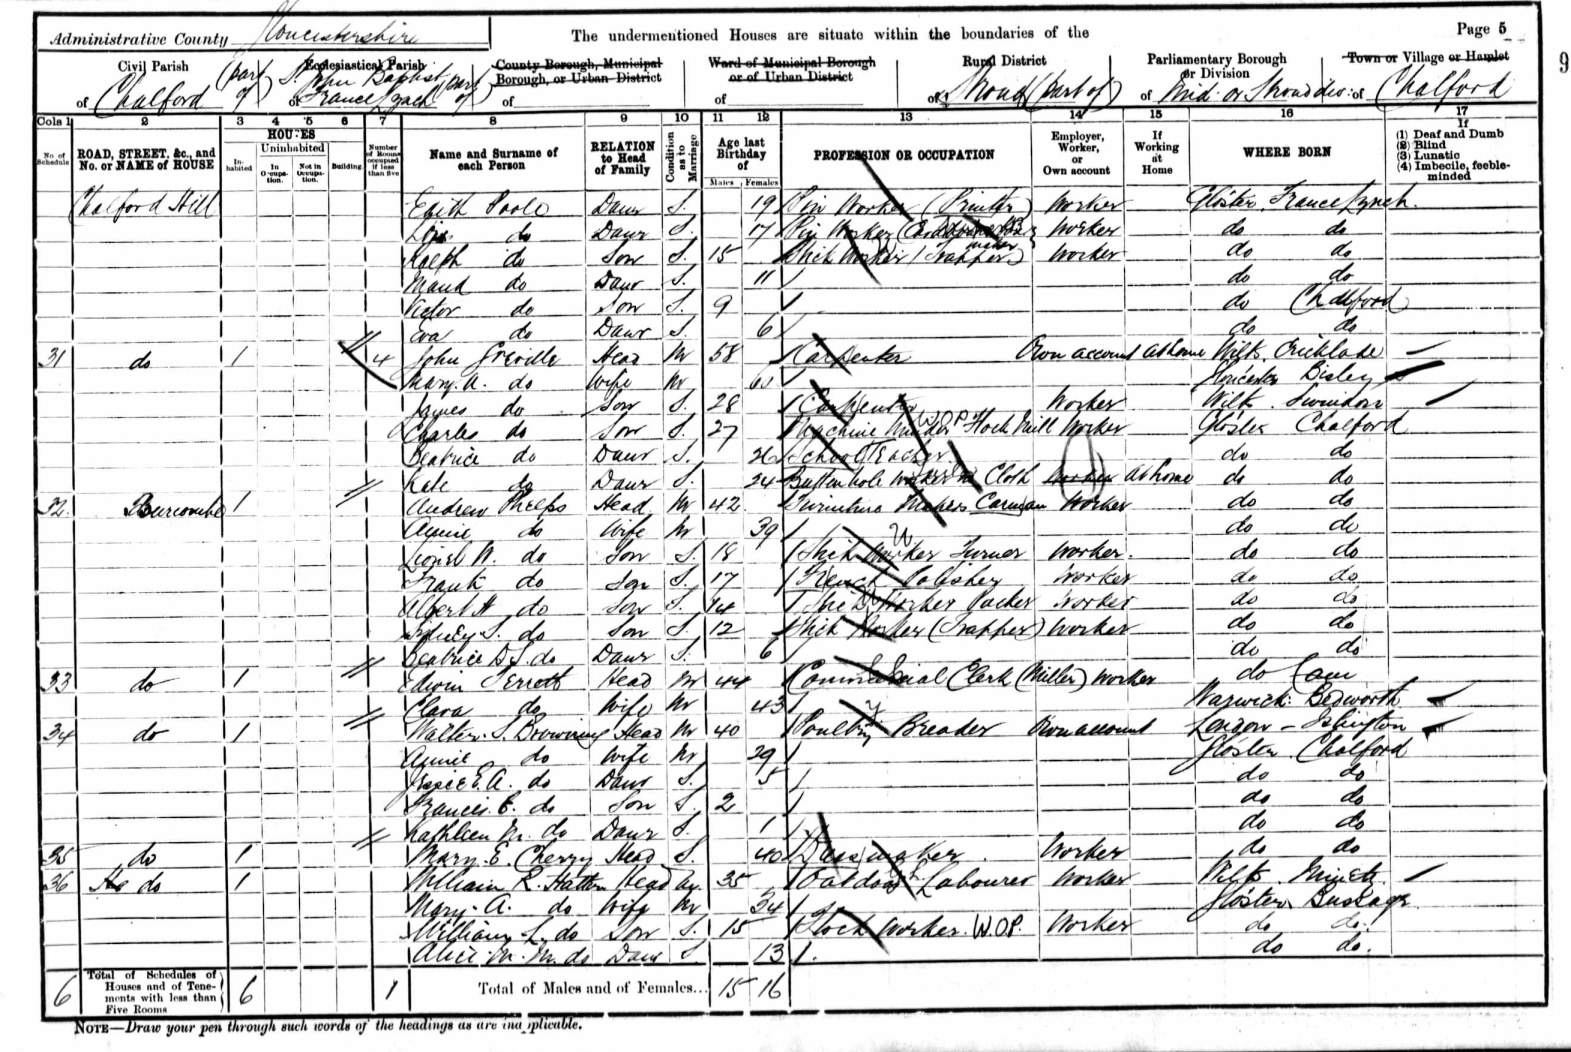 Administrative County Gloucestershire
The undermentioned Houses are situate within the boundaries of the
Page 5
9
Civil Parish of Chalford (part of)
Ecclesiastical Parish of St. John Baptist France Lynch (part of)
County Borough, Municipal Borough, or Urban District of
Ward of Municipal Borough or of Urban District of
Rural District of Stroud (part of)
Parliamentary Borough or Division of Mid. or Stroud div:
Town or Village or Hamlet of Chalford
Cols 1 2 3 4 5 6 7 8 9 10 11 12 13 14 15 16 17
No. of Schedule
ROAD, STREET, &c., and No. or NAME of HOUSE
HOUSES
Inhabited
Uninhabited
In Occupation.
Not in Occupation.
Building
Number of Rooms occupied if less than five
Name and Surname of each Person
RELATION to Head of Family
Condition as to Marriage
Age last Birthday of
Males Females
PROFESSION OR OCCUPATION
Employer, Worker, or Own account
If Working at Home
WHERE BORN
If (1) Deaf and Dumb (2) Blind (3) Lunatic (4) Imbecile, feeble-minded
Chalford Hill Edith Poole Daur S. 19 Pin Worker (Printer) Worker Gloster France Lynch.
do Daur S. 17 Pin Worker Worker do do
Ralph do Son S. 15 Stick Worker (Trapper) Worker do do
Maud do Daur S. 11 do do
Victor do Son S. 9 do Chalford
Eva do Daur S. 6 do do
31 do 1 4 John Greville Head M 58 Carpenter Own account at home Wilts. Cricklade
Mary. A. do Wife M Gloucester Bisley
James do Son S. 28 Carpenter Worker Wilts. Swindon
Charles do Son S. 27 Machine Minder W.O.P. Flock Mill Worker Gloster Chalford
Beatrice do Daur S. 26 School Teacher do do
Kate do Daur S. 24 Buttonhole Worker in Cloth Worker At home do do
32 Burcombe 1 Andrew Phelps Head M 42 Furniture Makers Carman Worker do do
Annie do Wife M 39 do do
Lionel W. do Son S. 18 Stick Worker Turner Worker. do do
Frank do Son S. 17 French Polisher Worker do do
Albert H do Son S. 14 Stick Worker Packer Worker do do
S. do Son S. 12 Stick Worker (Trapper) Worker do do
Beatrice D. S. do Daur S. 6 do do
33 do 1 Edwin Perrott Head M 44 Commercial Clerk (Miller) Worker do Cam
Clara do Wife M 43 Warwick: Bedworth
34 do 1 Walter. S. Browning Head M 40 Poultry Breader Own account London - Islington
Annie do Wife M 29 Gloster Chalford
Jessie E. A. do Daur S. 5 do do
Francis. C. do Son S. 2 do do
Kathleen M. do Daur S. 1 do do
35 do 1 Mary. E. Cherry Head S. 40 Dressmaker. Worker do do
36 do 1 William R. Hatton Head M. 35 Outdoor Labourer Worker Wilts. Minety
Mary. A. do Wife M 34 Gloster Bussage
William L. do Son S. 15 Flock Worker. W.O.P. Worker do do.
Alice M. M. do Daur S. 13 do do.
6 Total of Schedules of Houses and of Tenements with less than Five Rooms 6 1 Total of Males and of Females... 15 16
NOTE—Draw your pen through such words of the headings as are inapplicable.